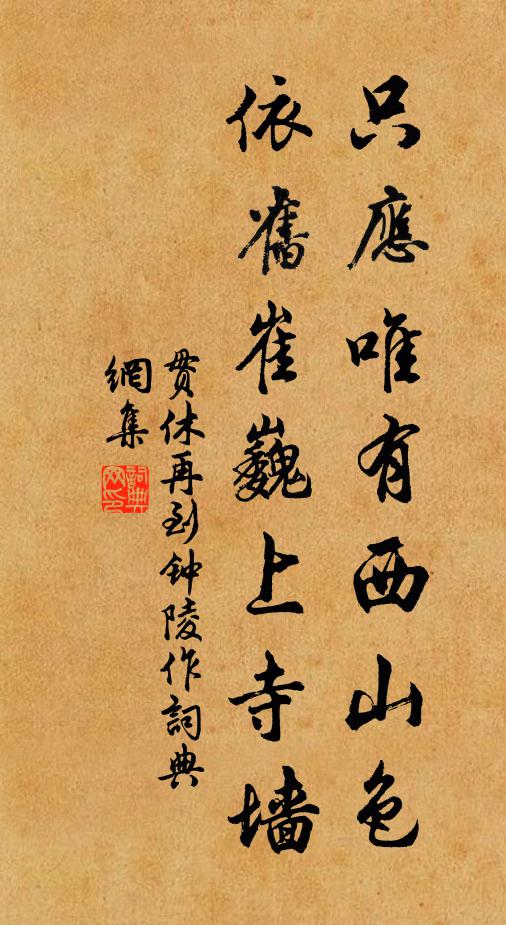 只應唯有西山色
依舊崔巍上寺墙
贯休再到钟陵作詞典
網集
詞典
网印